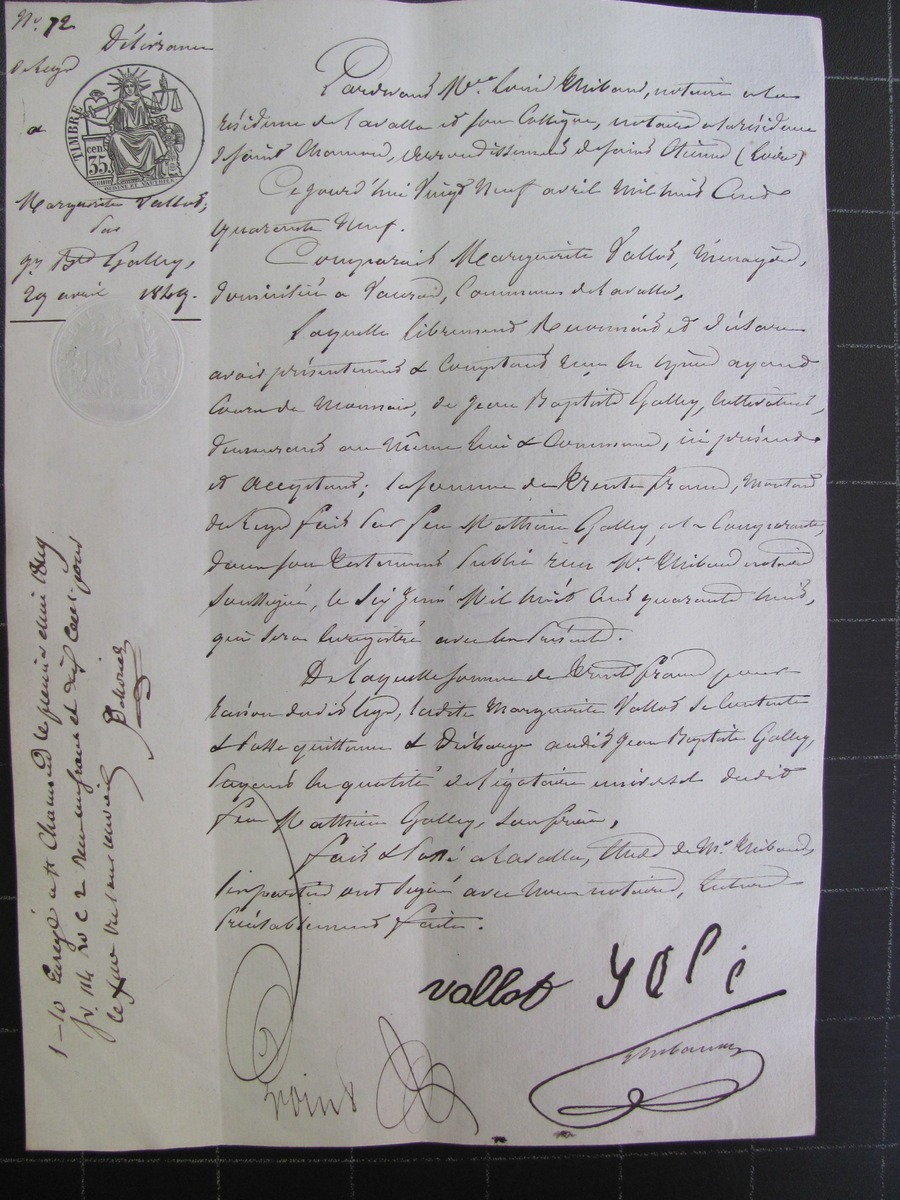 No. 72
Délivrance
de legs
TIMBRE
35 cen
à
Marguerite Vallot,
par
Jn Bte Galley,
29 avril 1849.
Pardevant Me Louis Thibaud, notaire à la
résidence de Lavalla et son Collègue, notaire à la résidence
de Saint Chamond, arrondissement de Saint Etienne (Loire)
Cejourd'hui Vingt Neuf avril Mil huit Cent
quarante Neuf.
Comparait Marguerite Vallot, Ménagère,
domiciliée à Commune de Lavalla,
Laquelle librement Reconnait et déclare
avoir présentement & Comptant reçu en espèces ayant
Cours de Monnaie, de Jean Baptiste Galley, Cultivateur,
demeurant au Même lieu & Commune, ici présent
et acceptant; la somme de Trente francs, Montant
du legs fait par feu Mathieu Galley, à la Comparante,
dans son testament public reçu Me Thibaud notaire
soussigné, le Six Mil huit Cent quarante huit,
qui sera Enregistré avec les présentes.
De laquelle somme de Trente francs pour
raison dudit legs, ladite Marguerite Vallot se Contente
& passe quittance & Décharge audit Jean Baptiste Galley,
payant En qualité de légataire universel dudit
feu Mathieu Galley, son frère,
fait & passé à Lavalla, Etude de Me Thibaud,
les parties ont signé avec Nous notaires, lecture
préalablement faite.
vallot
Thibaud
Enregé à St Chamond le premier mai 1849
fo 114 ro c 2 Reçu un franc et dix cent. pour
le